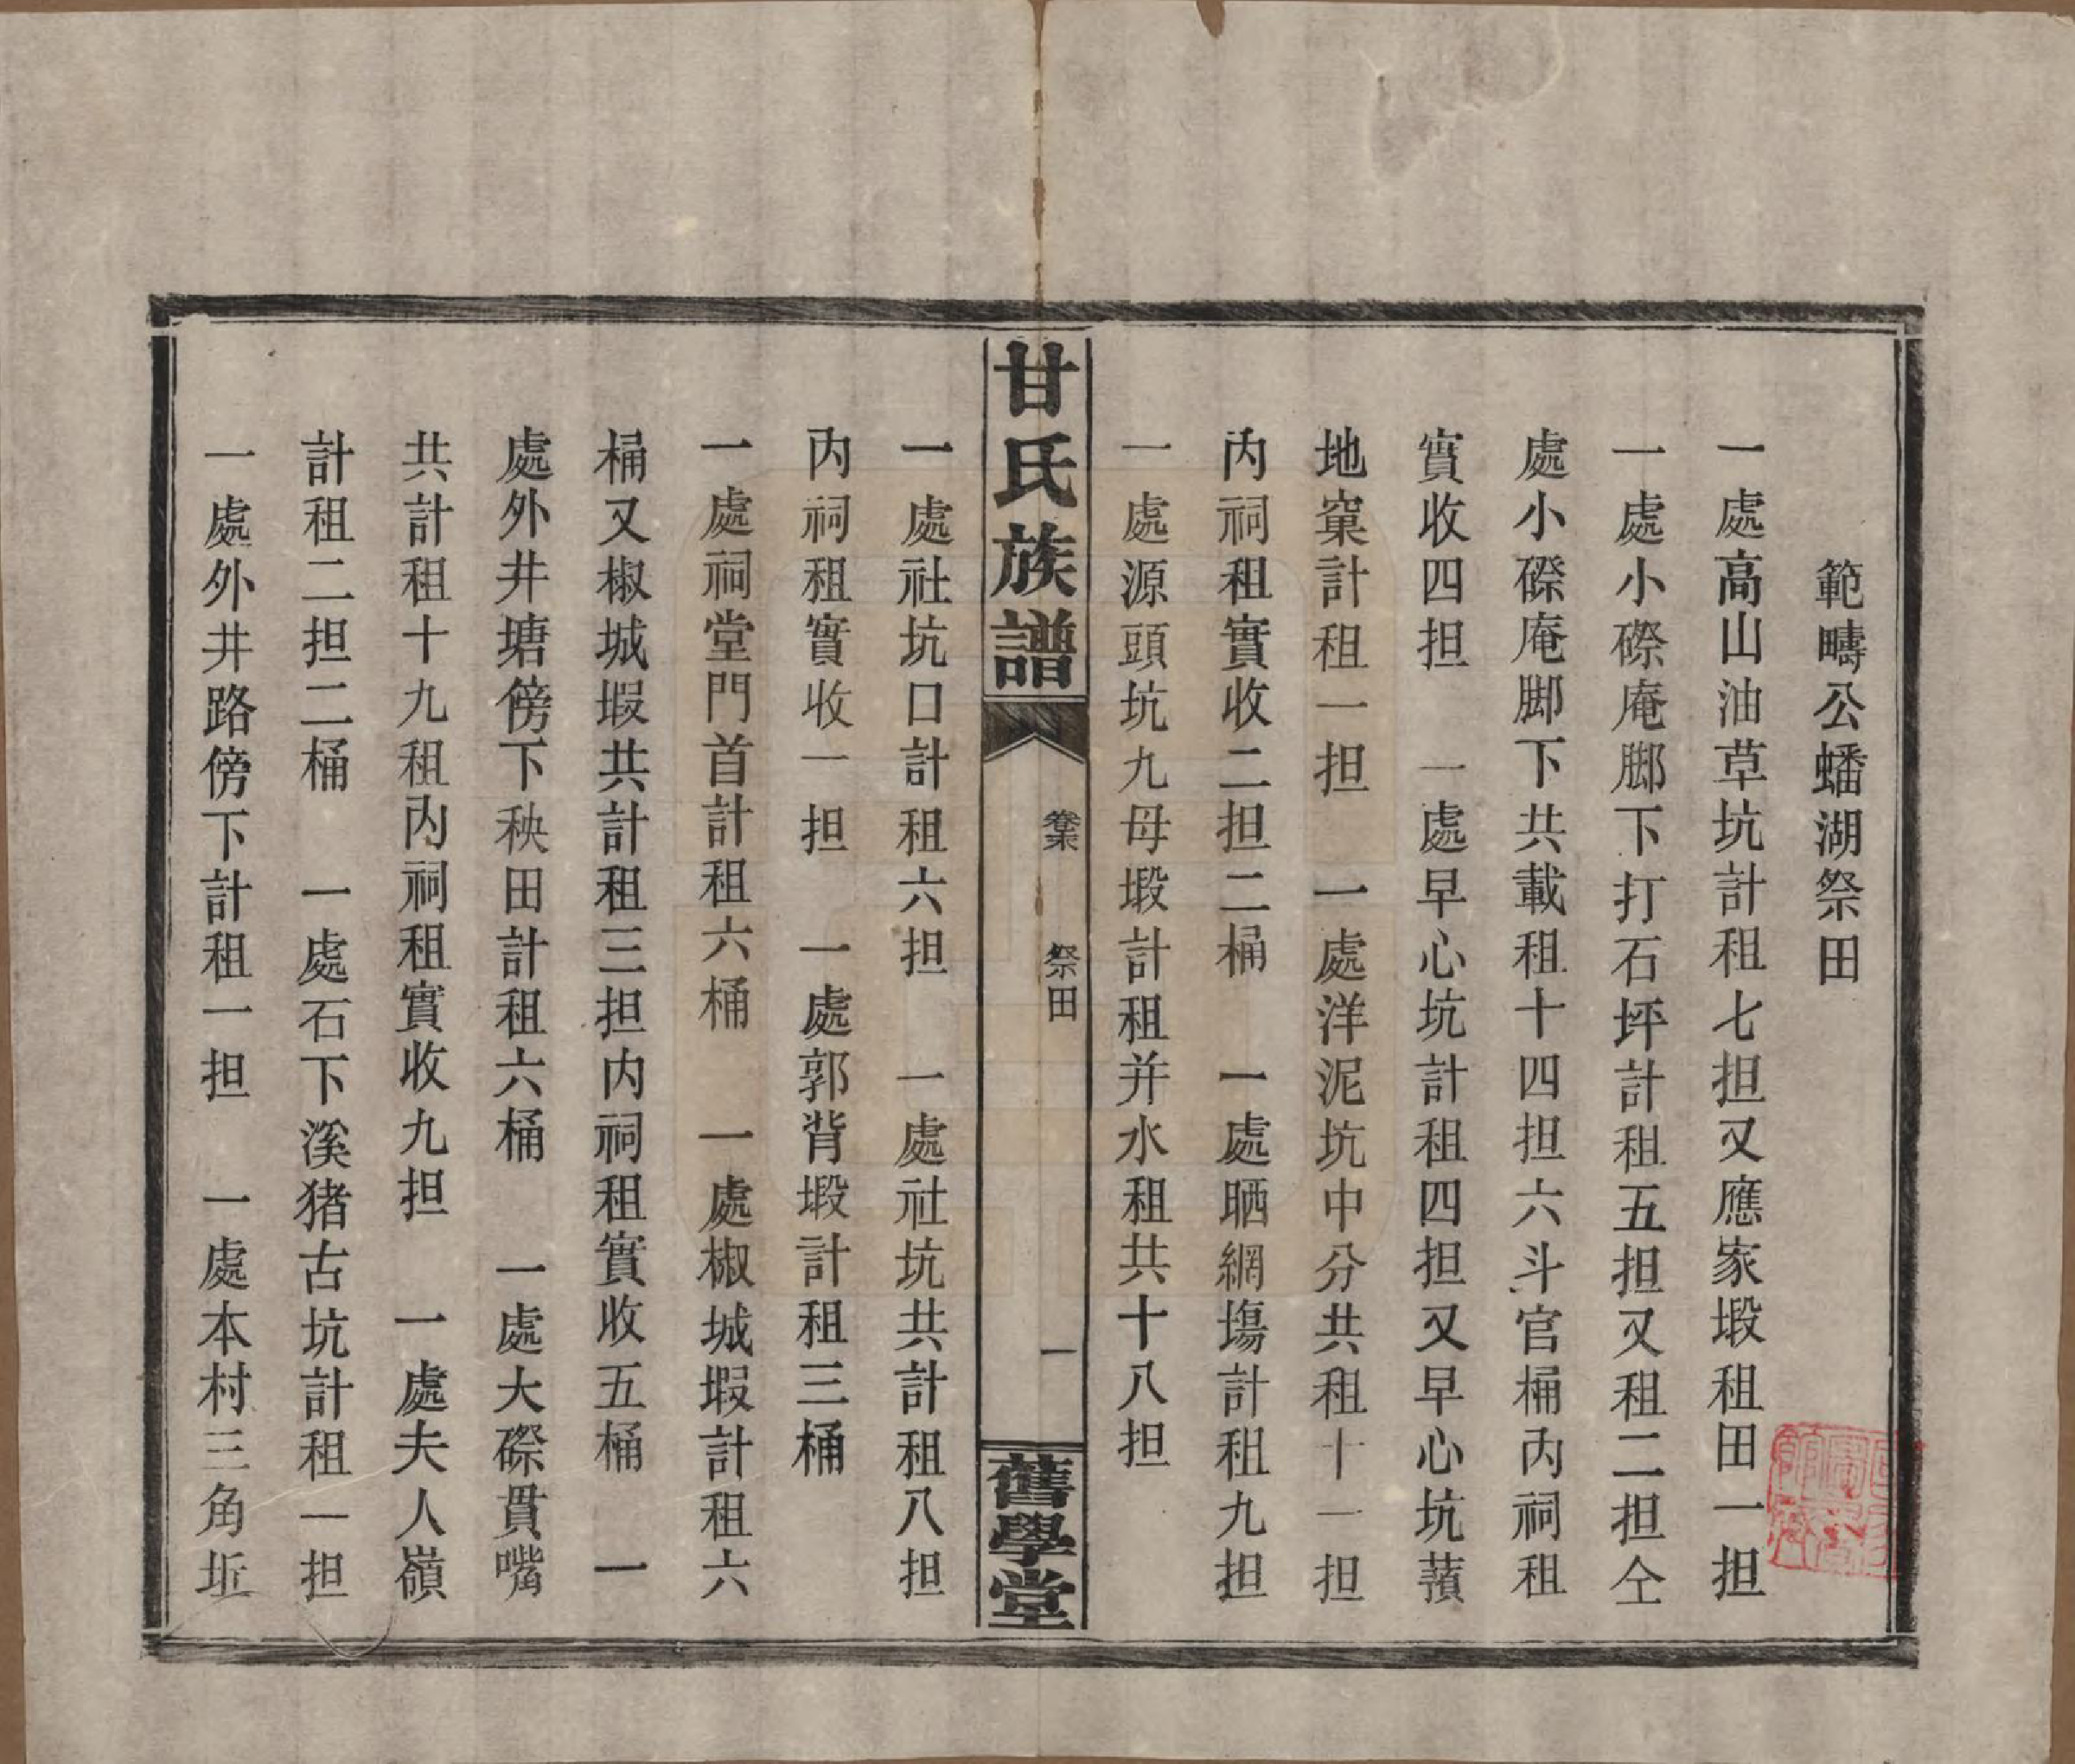 範疇公蟠湖祭田
一處高山油草坑計租七担又應家塅租田一担
一處小磜庵脚下打石坪計租五担又租二担仝
處小磜庵脚下共載租十四担六斗官桶內祠租
實收四担　一處早心坑計租四担又早心坑蕷
地窠計租一担　一處洋泥坑中分共租十一担
內祠租實收二担二桶　一處晒網塲計租九担
一處源頭坑九母塅計租并水租共十八担
甘氏族譜
卷末　祭田
一
舊學堂
一處社坑口計租六担　一處社坑共計租八担
內祠租實收一担　一處郭背塅計租三桶
一處祠堂門首計租六桶　一處椒城塅計租六
桶又椒城塅共計租三担內祠租實收五桶　一
處外井塘傍下秧田計租六桶　一處大磜貫嘴
共計租十九租內祠租實收九担　一處夫人嶺
計租二担二桶　一處石下溪猪古坑計租一担
一處外井路傍下計租一担　一處本村三角坵